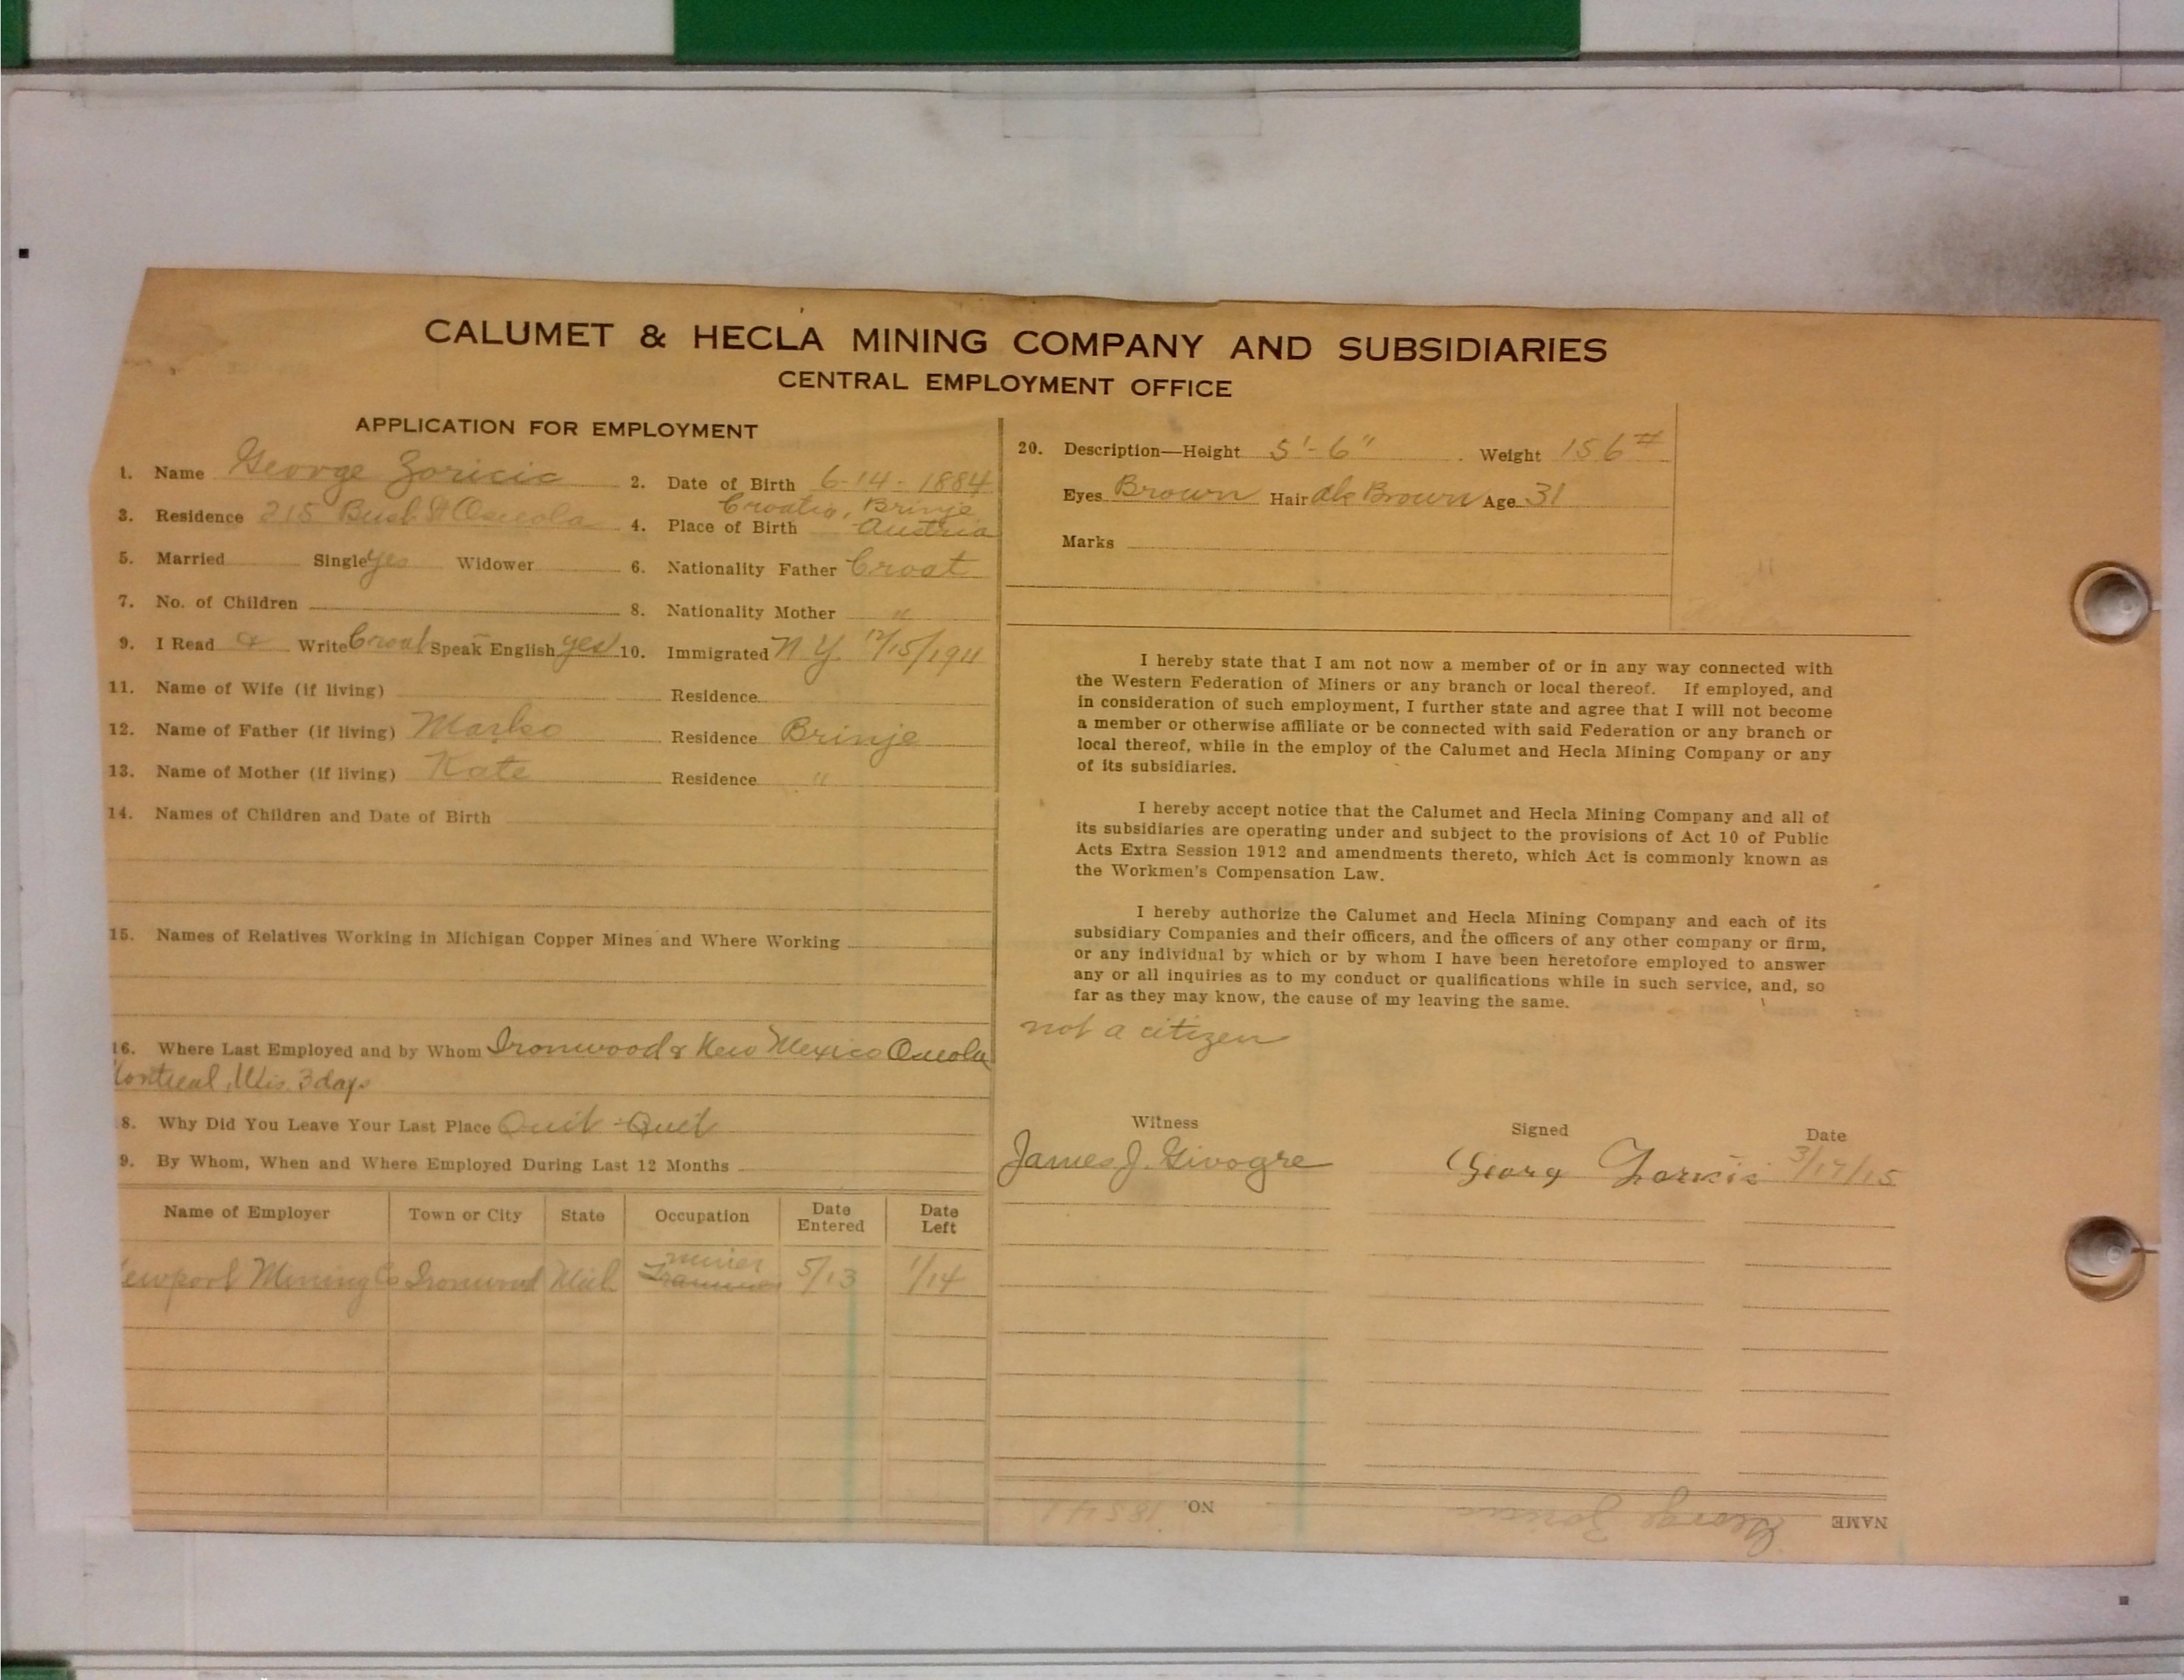 CALUMET & HECLA MINING COMPANY AND SUBSIDIARIES
CENTRAL EMPLOYMENT OFFICE
APPLICATION FOR EMPLOYMENT
1. Name George Zoricic 2. Date of Birth 6-14-1884
3. Residence 215 Bush St Osceola 4. Place of Birth Croatia, Brinje Austria
5. Married Single yes Widower 6. Nationality Father Croat
7. No. of Children 8. Nationality Mother "
9. I Read & Write Croat Speak English yes 10. Immigrated N.Y. 12/15/1911
11. Name of Wife (if living) Residence
12. Name of Father (if living) Marko Residence Brinje
13. Name of Mother (if living) Kate Residence "
14. Names of Children and Date of Birth
15. Names of Relatives Working in Michigan Copper Mines and Where Working
16. Where Last Employed and by Whom Ironwood & New Mexico Osceola
Montreal, Wis. 3 days
8. Why Did You Leave Your Last Place Quit - Quit
9. By Whom, When and Where Employed During Last 12 Months
Name of Employer Town or City State Occupation Date Entered Date Left
ewport Mining Co Ironwood Mich miner Trammer 5/13 1/14
20. Description—Height 5'-6" Weight 156#
Eyes Brown Hair dk Brown Age 31
Marks
I hereby state that I am not now a member of or in any way connected with
the Western Federation of Miners or any branch or local thereof. If employed, and
in consideration of such employment, I further state and agree that I will not become
a member or otherwise affiliate or be connected with said Federation or any branch or
local thereof, while in the employ of the Calumet and Hecla Mining Company or any
of its subsidiaries.
I hereby accept notice that the Calumet and Hecla Mining Company and all of
its subsidiaries are operating under and subject to the provisions of Act 10 of Public
Acts Extra Session 1912 and amendments thereto, which Act is commonly known as
the Workmen's Compensation Law.
I hereby authorize the Calumet and Hecla Mining Company and each of its
subsidiary Companies and their officers, and the officers of any other company or firm,
or any individual by which or by whom I have been heretofore employed to answer
any or all inquiries as to my conduct or qualifications while in such service, and, so
far as they may know, the cause of my leaving the same.
not a citizen
Witness Signed Date
James J. Givogre Georg 3/17/15
NAME George Zoricic NO.